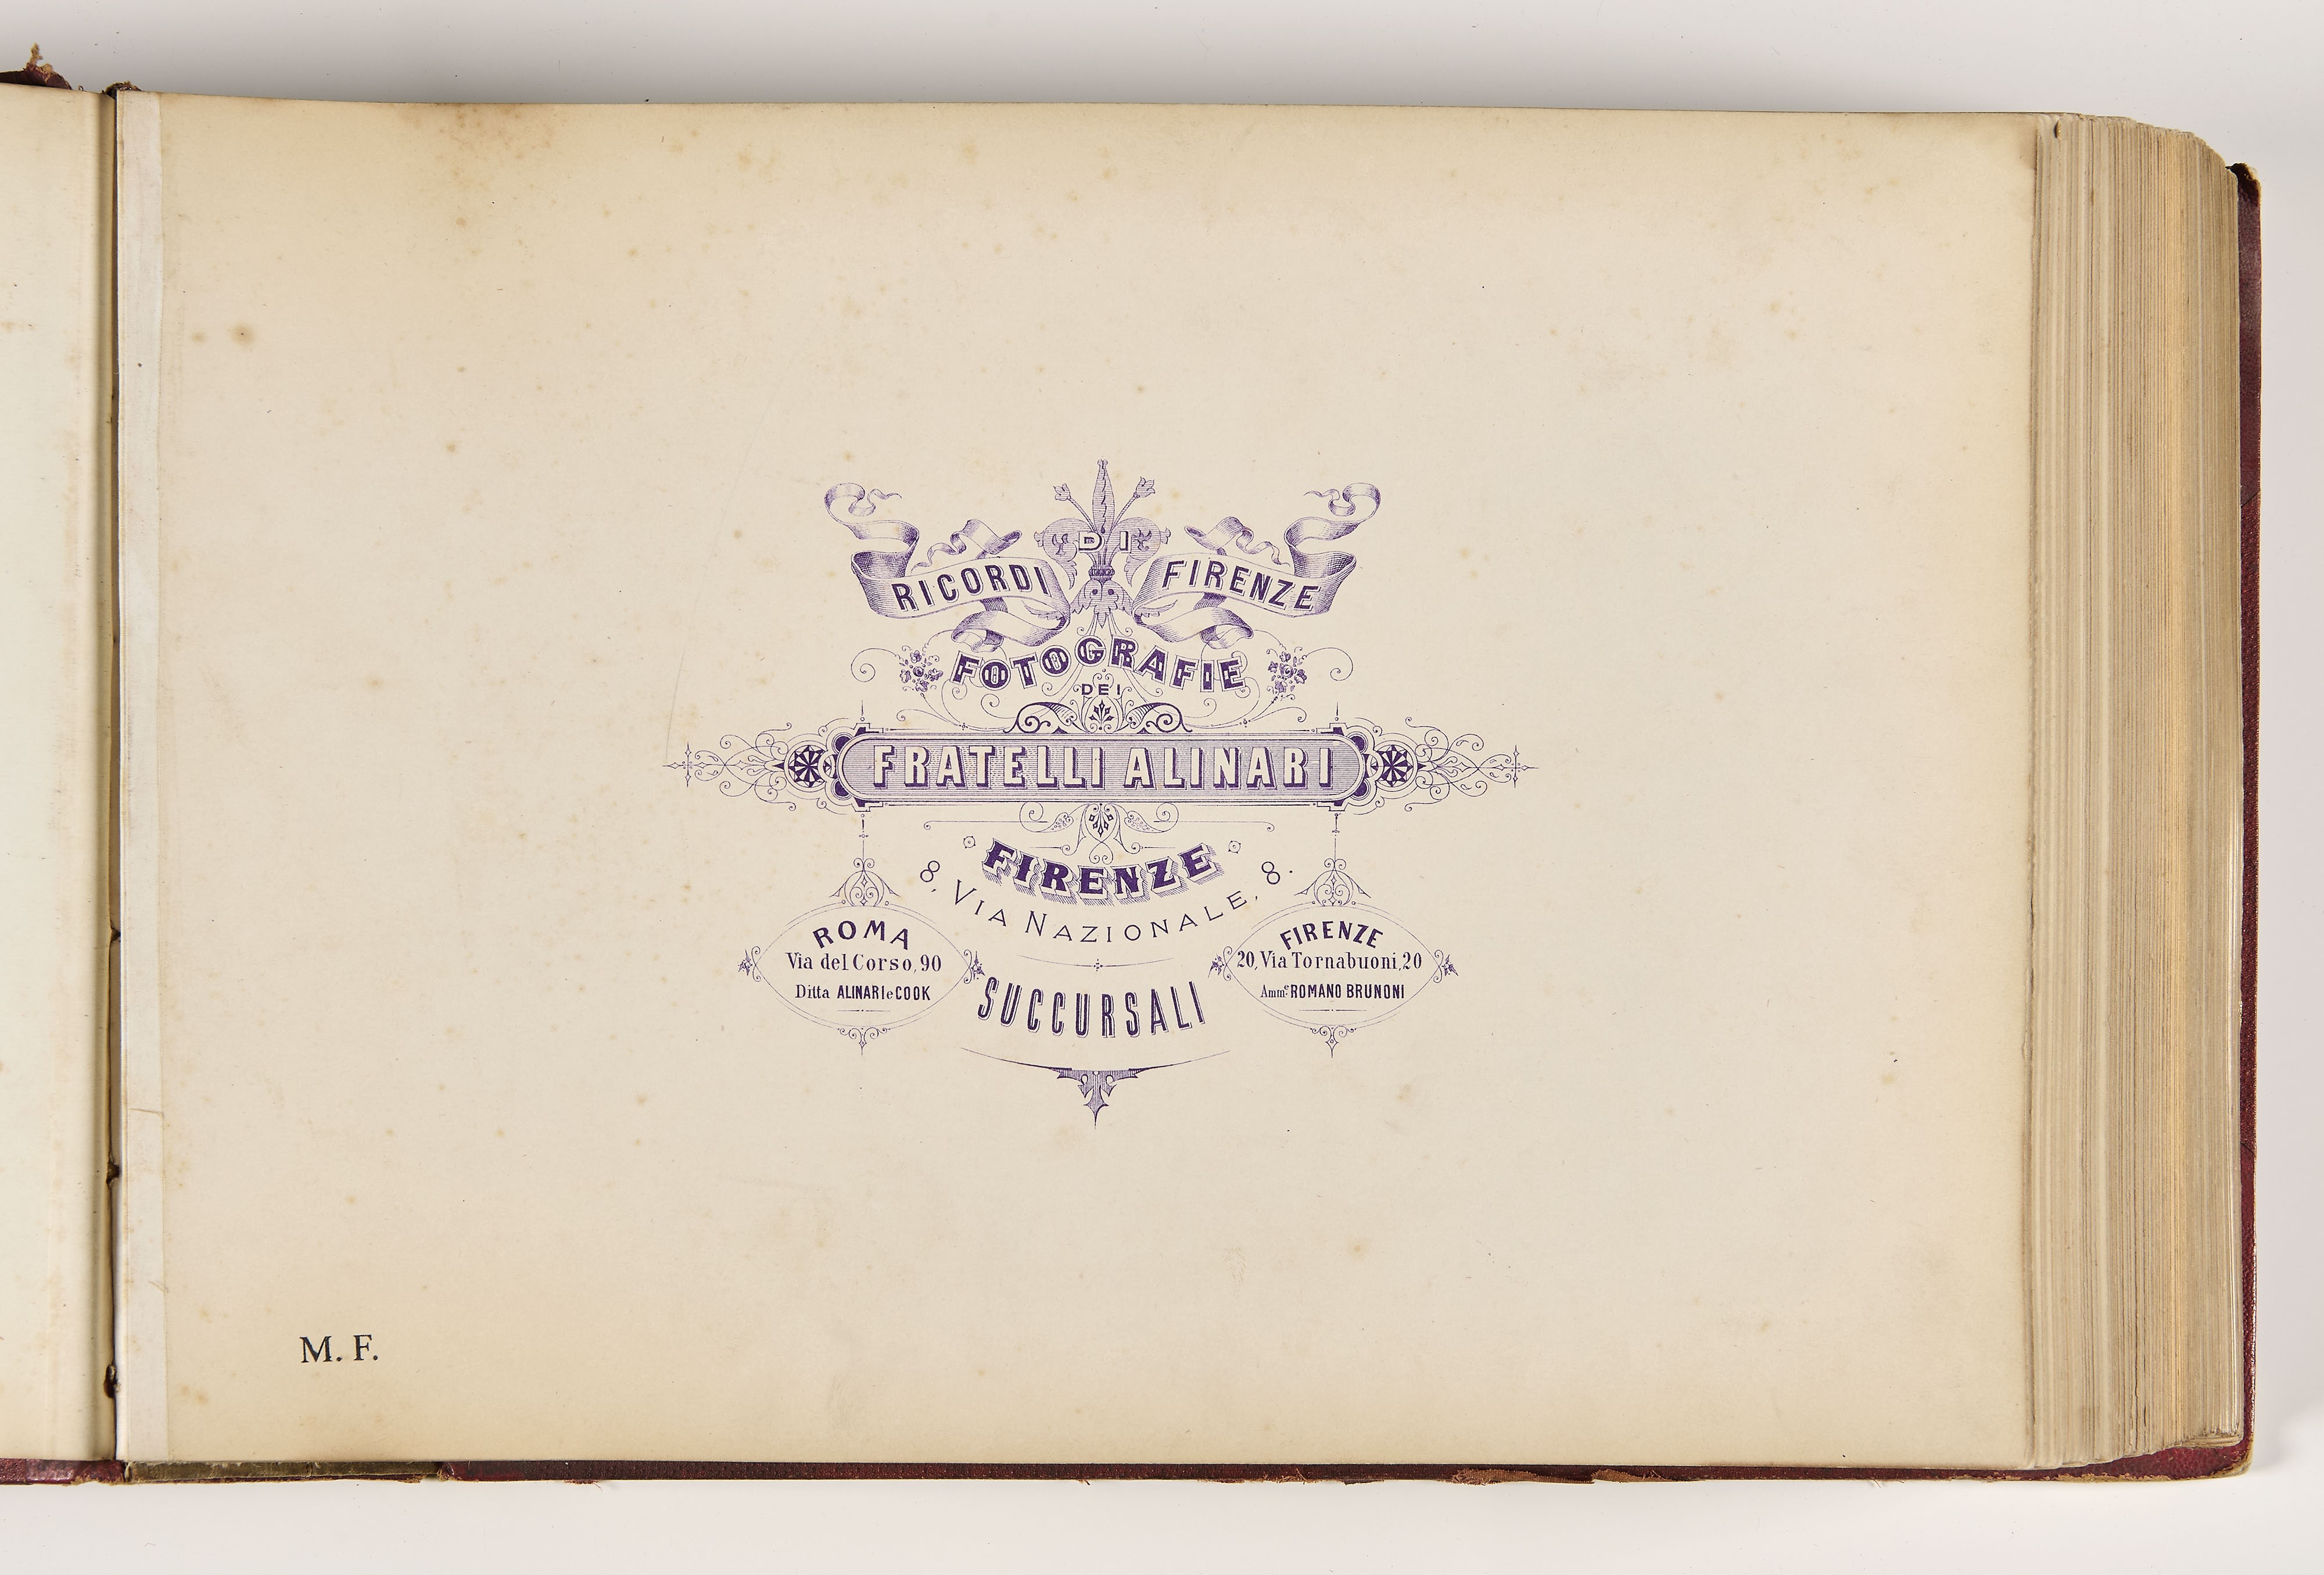 RICORDI DI FIRENZE
FOTOGRAFIE
DEI
FRATELLI ALINARI
FIRENZE
8, VIA NAZIONALE, 8.
ROMA
Via del Corso, 90
Ditta ALINARI e COOK
SUCCURSALI
FIRENZE
20, Via Tornabuoni, 20
Amm.e ROMANO BRUNONI
M. F.